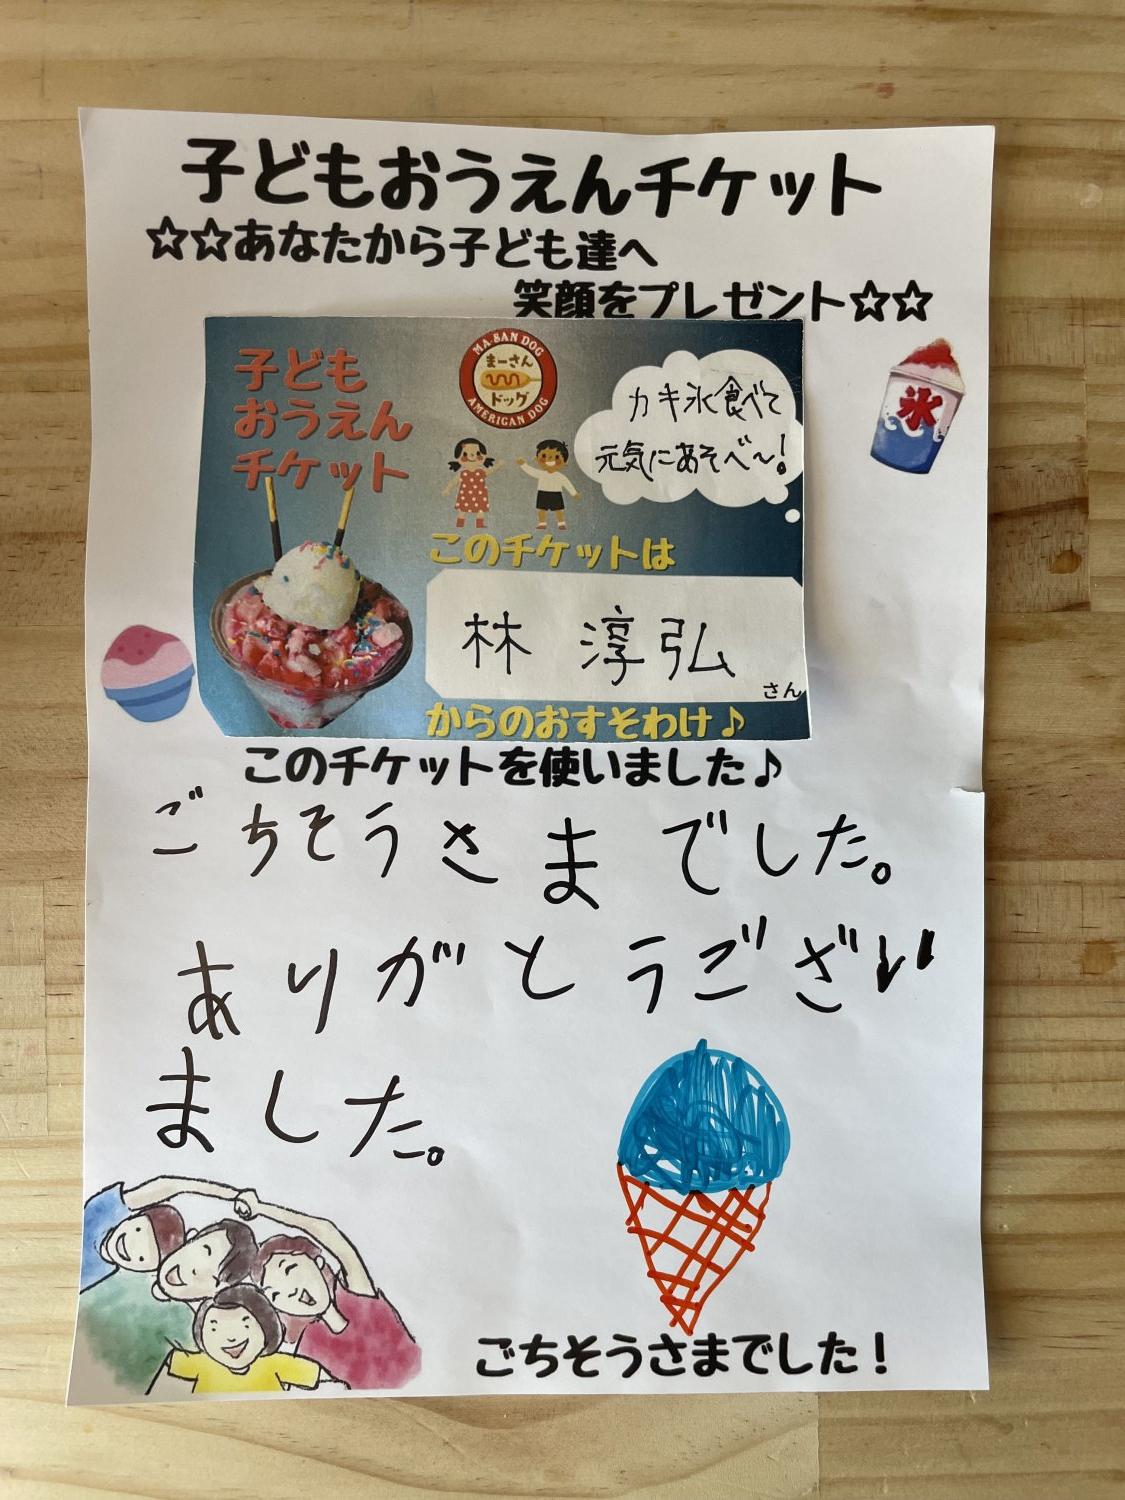 子どもおうえんチケット
☆☆あなたから子ども達へ
笑顔をプレゼント☆☆
子ども
おうえん
チケット
MA-SAN DOG
まーさん
ドッグ
AMERICAN DOG
カキ氷食べて
元気にあそべ〜!
氷
このチケットは
林 淳弘
さん
からのおすそわけ♪
このチケットを使いました♪
ごちそうさまでした。
ありがとうござい
ました。
ごちそうさまでした!